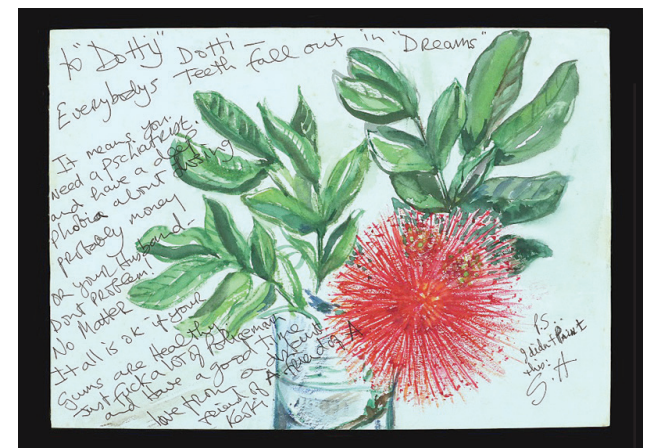 to "Dotty" Dotti –
Everybodys Teeth Fall out in "Dreams"
It means you
need a Pschiatrist.
and have a deep
Phobia about losing
probably money
or your Husband –
Dont Problem!
No Matter
It all is ok if your
Gums are Healthy
Just Fuck a lot of Policemen
and have a good time
love from a distant
friend of A friend of A
PS
I didnt Paint
this:
S.H